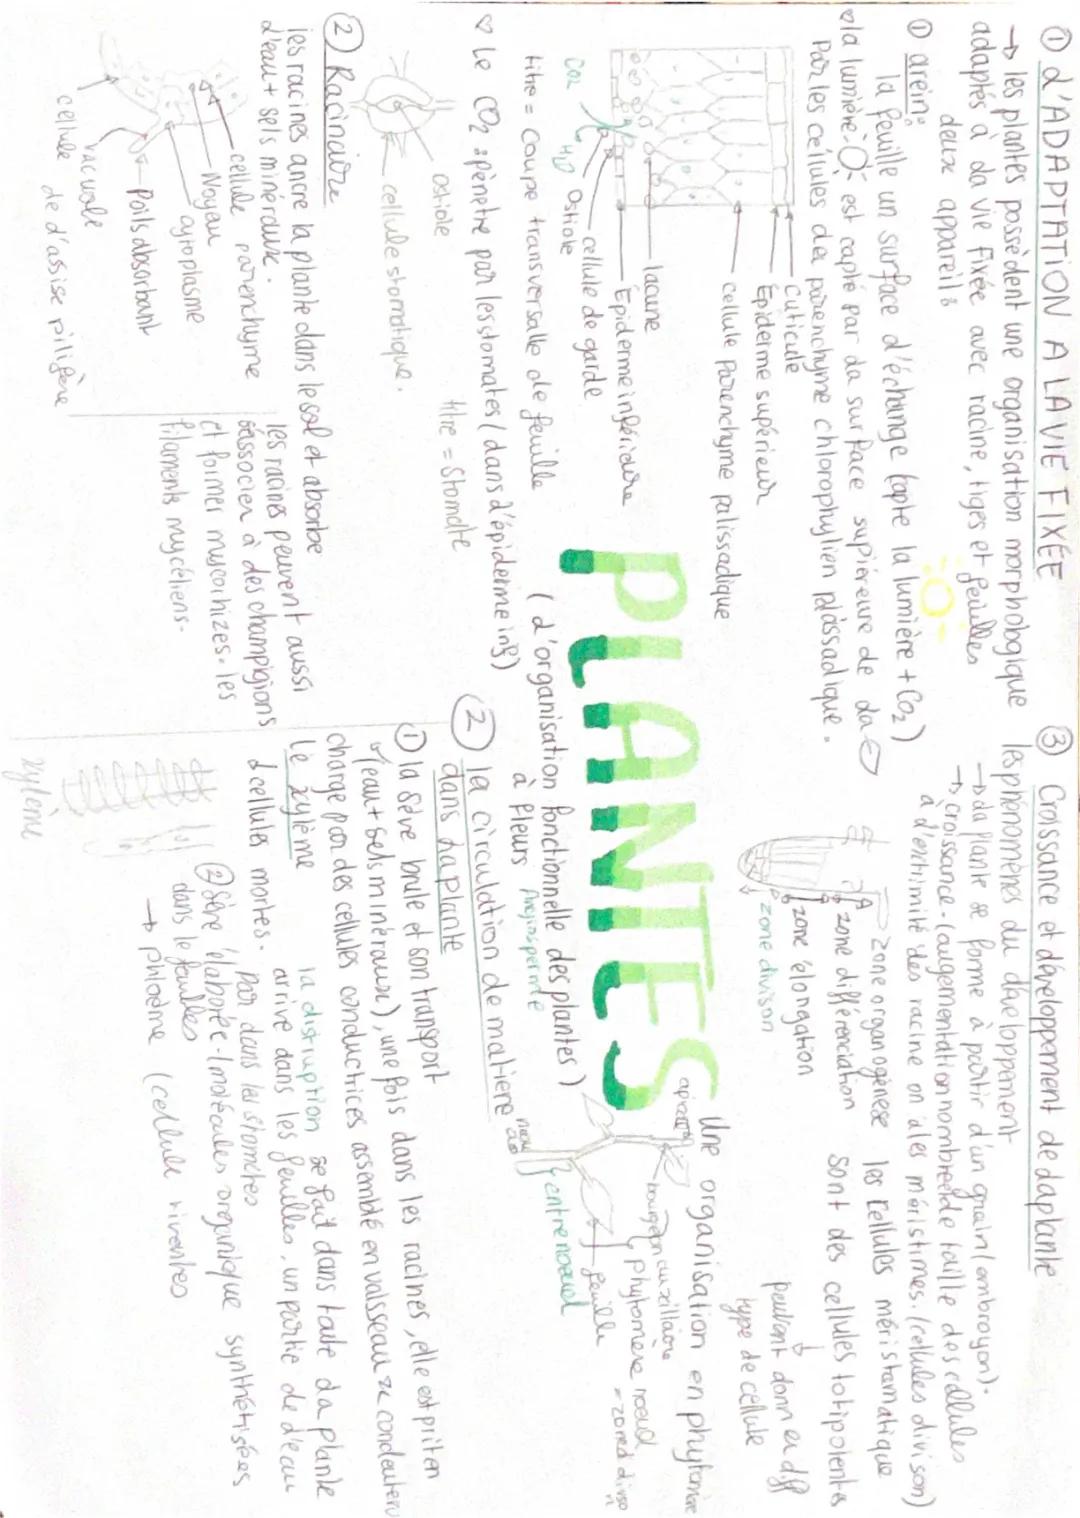 ① L'ADAPTATION A LA VIE FIXÉE
→ les plantes possèdent une organisation morphologique
adaptés à la vie fixée avec racine, tiges et feuilles
deux appareils
① arein:
la feuille un surface d'échange (capte la lumière + CO2)
♡ la lumière est capté par la surface supérieure de la
Par les cellules du parenchyme chlorophylien plassadique.
Cuticule
Épiderme supérieur
cellule parenchyme palissadique
lacune
Épiderme inférieure
cellule de garde
CO2
H2O
Ostiole
titre = Coupe transversalle de feuille
♡ Le CO2 : pénètre par les stomates (dans l'épiderme inf)
ostiole
cellule stomatique.
titre = Stomate
② Racinaire
les racines ancre la plante dans le sol et absorbe
d'eau + sels minéraux.
cellule parenchyme
Noyau
cytoplasme
Poils absorbant
vacuole
cellule de l'assise pilifère
les racines peuvent aussi
s'associer à des champignons
et former mycorhizes. les
filaments mycéliens.
PLANTES
(l'organisation fonctionnelle des plantes)
à fleurs Angiosperme
② la circulation de matiere
dans la plante
① la sève brute et son transport
(eau + sels minéraux), une fois dans les racines, elle est prit en
charge par des cellules conductrices assemblé en vaisseaux
le xylème
↓ cellules mortes.
la distruption se fait dans toute la plante
arrive dans les feuilles, un partie de l'eau
par dans les stomates
② Sève élaborée - (molécules organique synthétisées
dans le feuilles
→ phloème (cellule vivantes
xylème
③ Croissance et développement de la plante
les phénomènes du développment
→ la plante se forme à partir d'un grain (embroyon).
→ croissance - (augementation nombre et de taille des cellules
a l'entrimité des racine on a les méristimes. (cellules divison)
zone organogènese
zone différenciation
zone élongation
zone divison
les cellules méristamatique
sont des cellules totipotentes
↓
peuvant donner diff
type de cellule
Une organisation en phytomère
apical
bourgeon auxillaire
phytomère noeud
= zone d divison
feuille
entre noeud